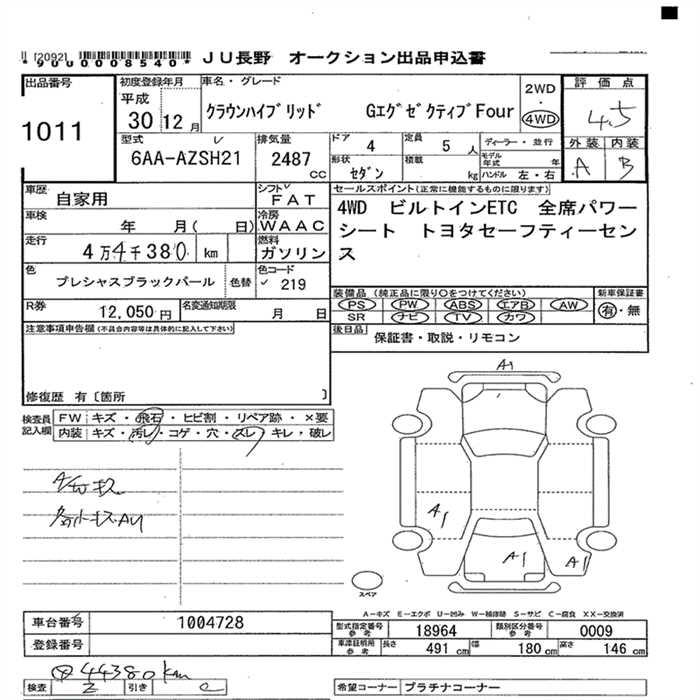 [2092]
*9000008540*
JU長野 オークション出品申込書
出品番号
1011
初度登録年月
平成
30 12月
車名・グレード
クラウンハイブリッド GエグゼクティブFour
2WD
・
4WD
評価点
4.5
外装 内装
A B
型式
6AA-AZSH21
排気量
2487 cc
ドア 4
定員 5 人
ディーラー・並行
形状 セダン
積載 kg
モデル年式 年
ハンドル 左・右
車歴 自家用
シフト FAT
セールスポイント(正常に機能するものに限ります)
車検 年 月( 日)
冷房 WAAC
4WD ビルトインETC 全席パワー
シート トヨタセーフティーセン
ス
走行 4万4千380 km
燃料 ガソリン
色 プレシャスブラックパール 色替
色コード 219
装備品 (純正品に限り○をつけてください)
PS PW ABS エアB AW
SR ナビ TV カワ
新車保証書
有・無
R券 12,050円
名変通知期限 月 日
後日品 保証書・取説・リモコン
注意事項申告欄(不具合内容等は具体的に記入して下さい)
修復歴 有〔箇所 〕
検査員記入欄
FW キズ・飛石・ヒビ割・リペア跡・×要
内装 キズ・汚レ・コゲ・穴・スレ・キレ・破レ
A1
A1
A1
A1
スペア
A-キズ E-エクボ U-凹み W-補修跡 S-サビ C-腐食 XX-交換済
車台番号 1004728
登録番号
型式指定番号参考 18964
類別区分番号参考 0009
車庫証明用参考 長さ 491 cm 幅 180 cm 高さ 146 cm
44380km
検査 引き
希望コーナー プラチナコーナー